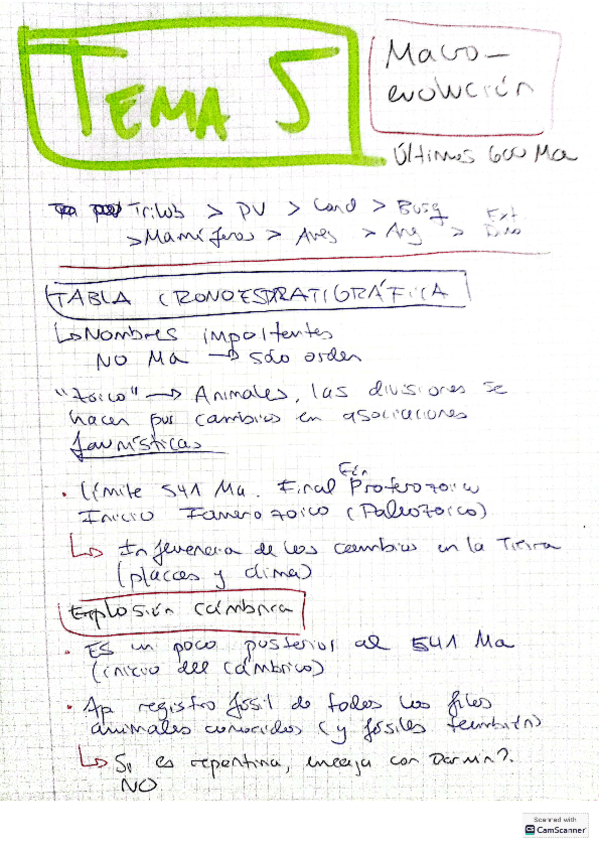 TEMA 5
Macro-
evolución
Últimos 600 Ma
Trilob > PV > Cord > Bosq
> Mamíferos > Aves > Ang > Ext.
TABLA CRONOESTRATIGRÁFICA
↳ Nombres importantes
NO Ma → sólo orden
"zoico" → Animales, las divisiones se
hacen por cambios en asociaciones
faunísticas
• Límite 541 Ma. Final Proterozoico
Inicio Fanerozoico (Paleozoico)
↳ Inferencia de los cambios en la Tierra
(placas y clima)
Explosión cámbrica
• ES un poco posterior al 541 Ma
(inicio del Cámbrico)
• Ap registro fósil de todos los filos
animales conocidos (y fósiles también)
↳ Si es repentina, encaja con Darwin?.
NO
Scanned with
CS CamScanner